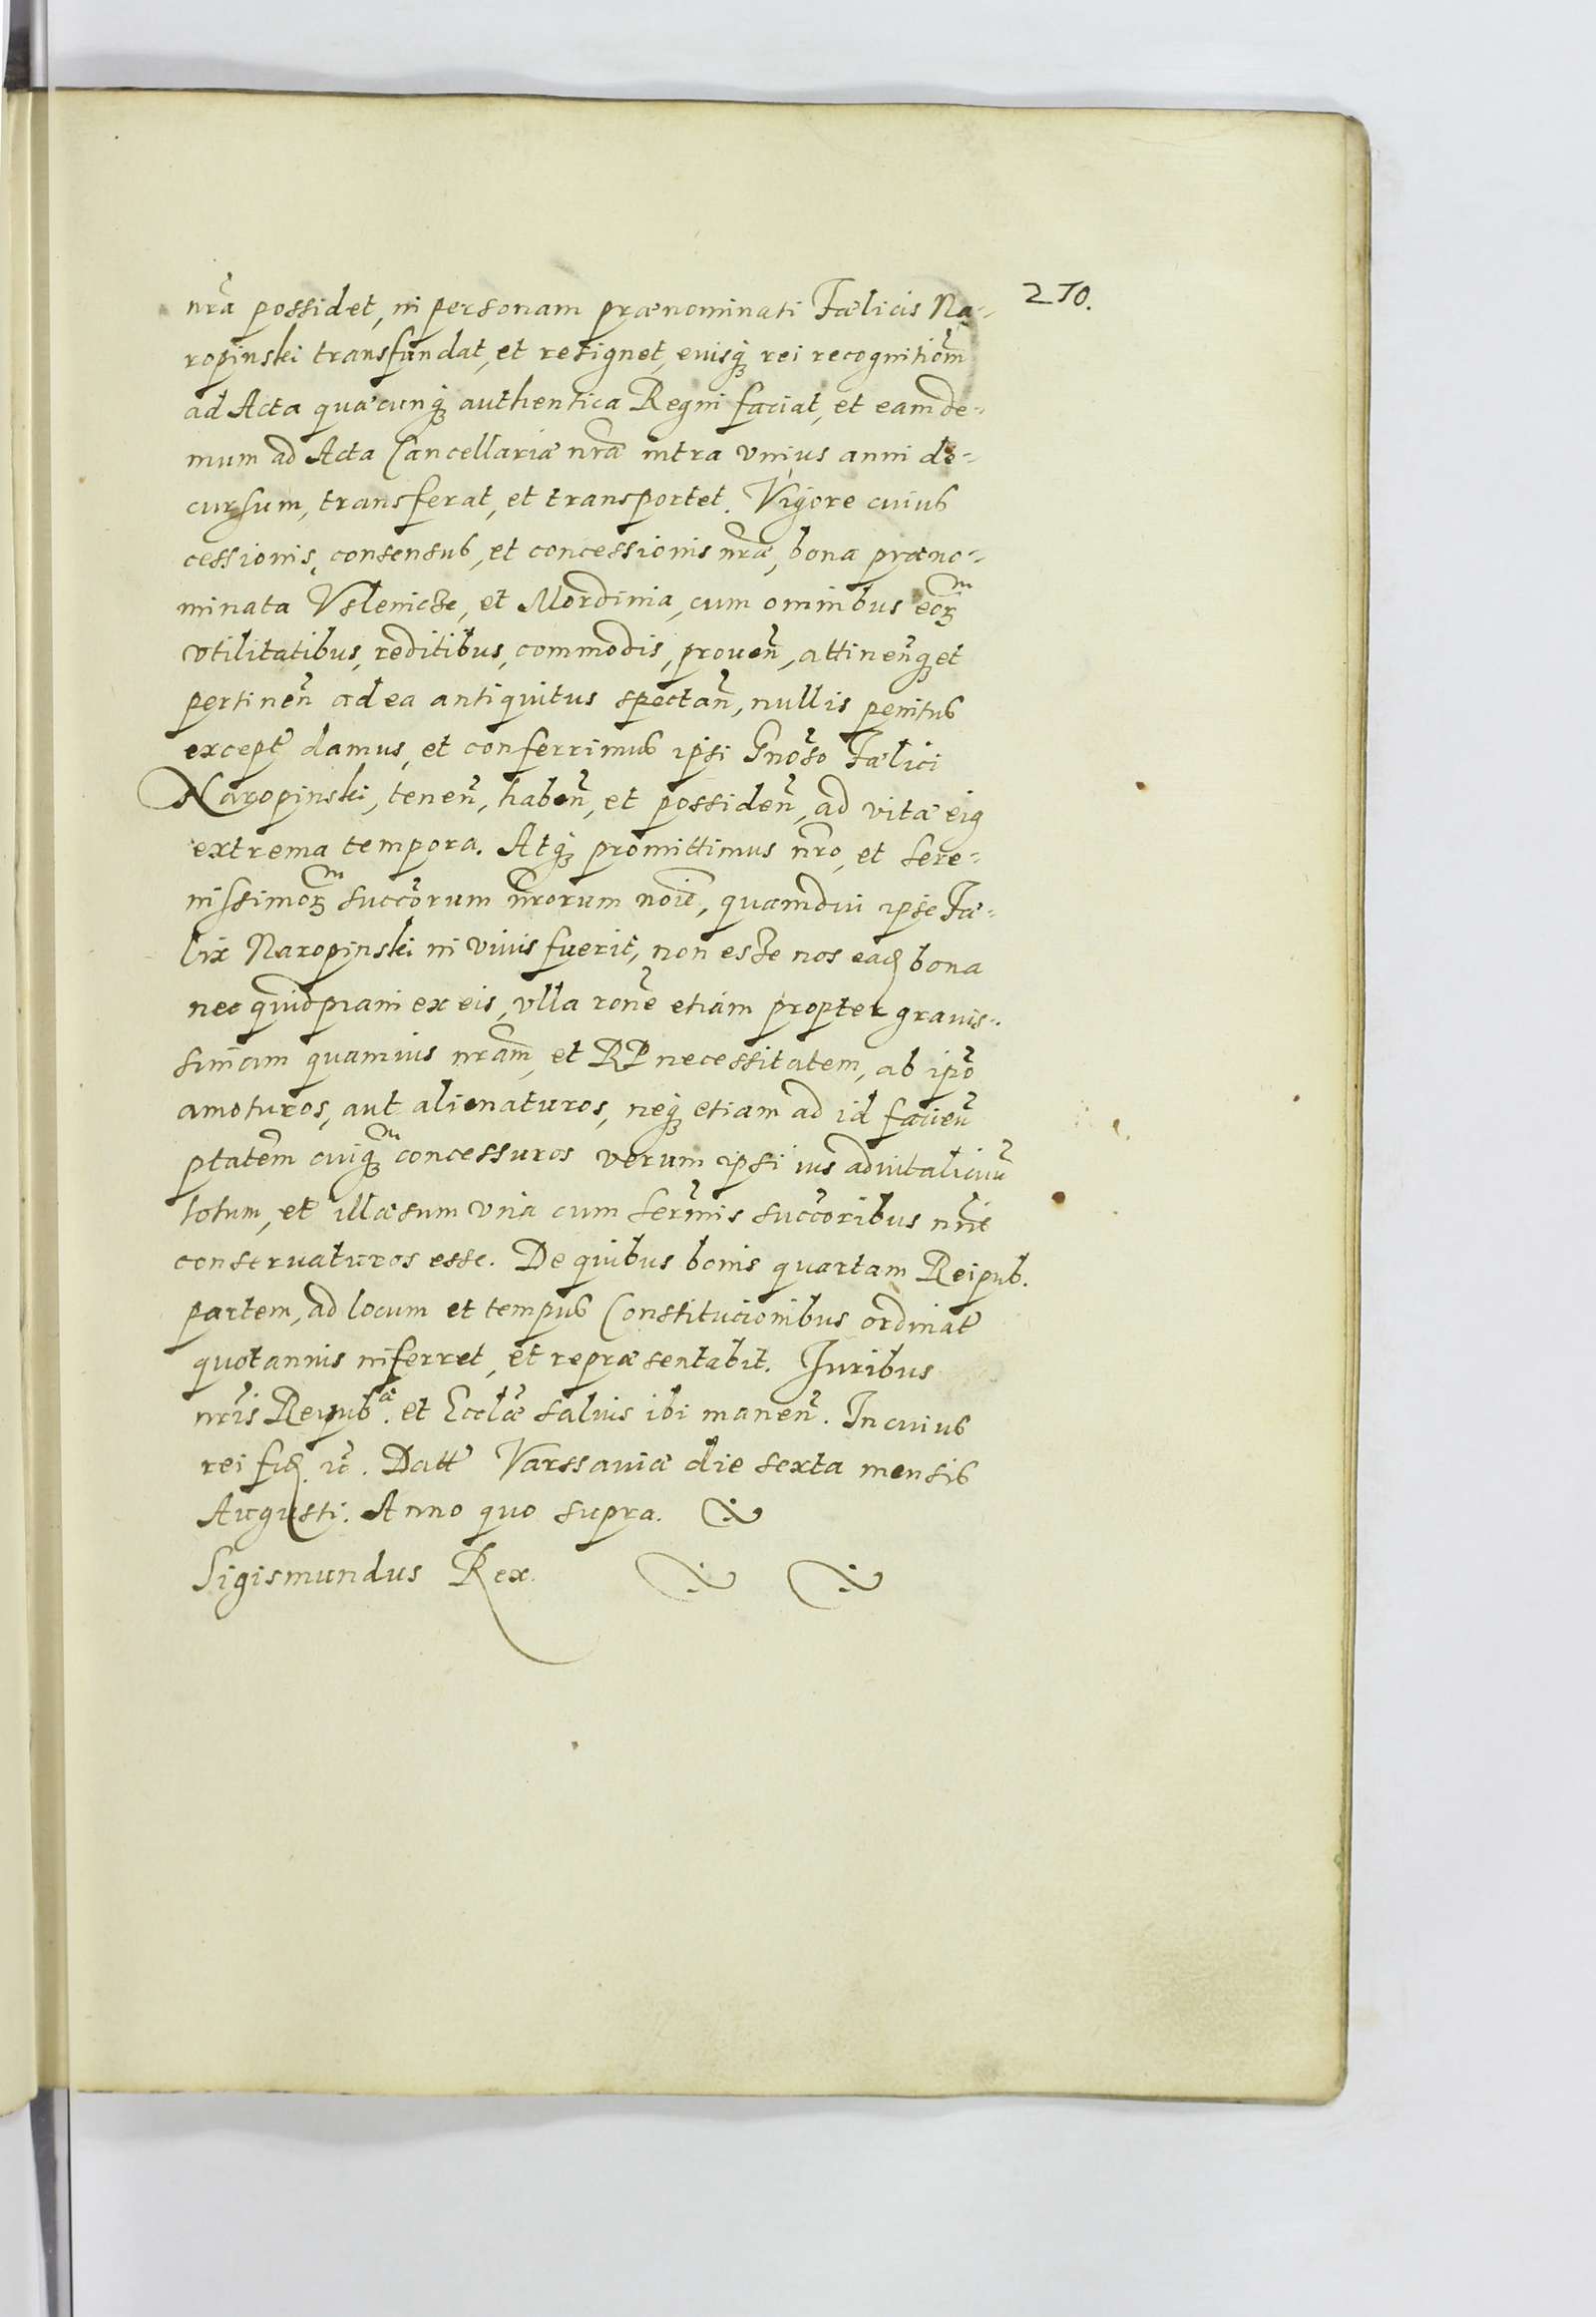 210.
nrã possidet, in personam prænominati Fælicis Na-
ropinski transfundat, et resignet, eiusq́ʒ rei recognitiõm
ad Acta quæcunq́ʒ authentica Regni faciat, et eam de-
mum ad Acta Cancellariæ nræ̃ intra vnius anni de-
cursum, transferat, et transportet. Vigore cuius
cessionis, consensus, et concessionis nræ̃, bona præno-
minata Vslenicze, et Mordinia, cum omnibus eorꝫm
vtilitatibus, reditibus, commodis, prouen̉, attinen̉qʒ et
pertinen̉ ad ea antiquitus spectan̉, nullis penitus
except̃ damus, et conferrimus ipsi Gnõso Fælici
Naropinski, tenen̉, haben̉, et possiden̉, ad vitæ eiꝯ
extrema tempora. Atq́ʒ promittimus nr̃o, et Sere-
nissimorꝫm succõrum nr̃orum noĩe, quamdiu ipse Fæ-
lix Naropinski in viuis fuerit, non esse nos eadꝫ bona
nec quidpiam ex eis, vlla rõne etiam propter grauis-
simam quamuis nrãm, et RP necessitatem, ab ipõ
amoturos, aut alienaturos, neq́ʒ etiam ad id facien̉
ptatẽm cuiqʒm concessuros verum ipsi ius aduitalicium̉
totum, et illæsum vna cum Serm̃is succõribus nr̃is
conseruaturos esse. De quibus bonis quartam Reipub.
partem, ad locum et tempus Constitucionibus ordinat̃
quotannis inferret, et repræsentabit. Iuribus
nrĩs Reipubcæ. et Ecclæ̃ saluis ibi manen̉. In cuius
rei fidꝫ. ic̃. Datt̃ Varssauiæ die sexta mensis
Augusti. Anno quo supra.
Sigismundus Rex.